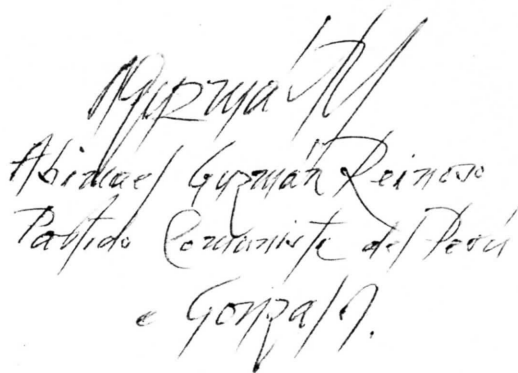 AGuzmán
Abimael Guzmán Reinoso
Partido Comunista del Perú
Gonzalo.